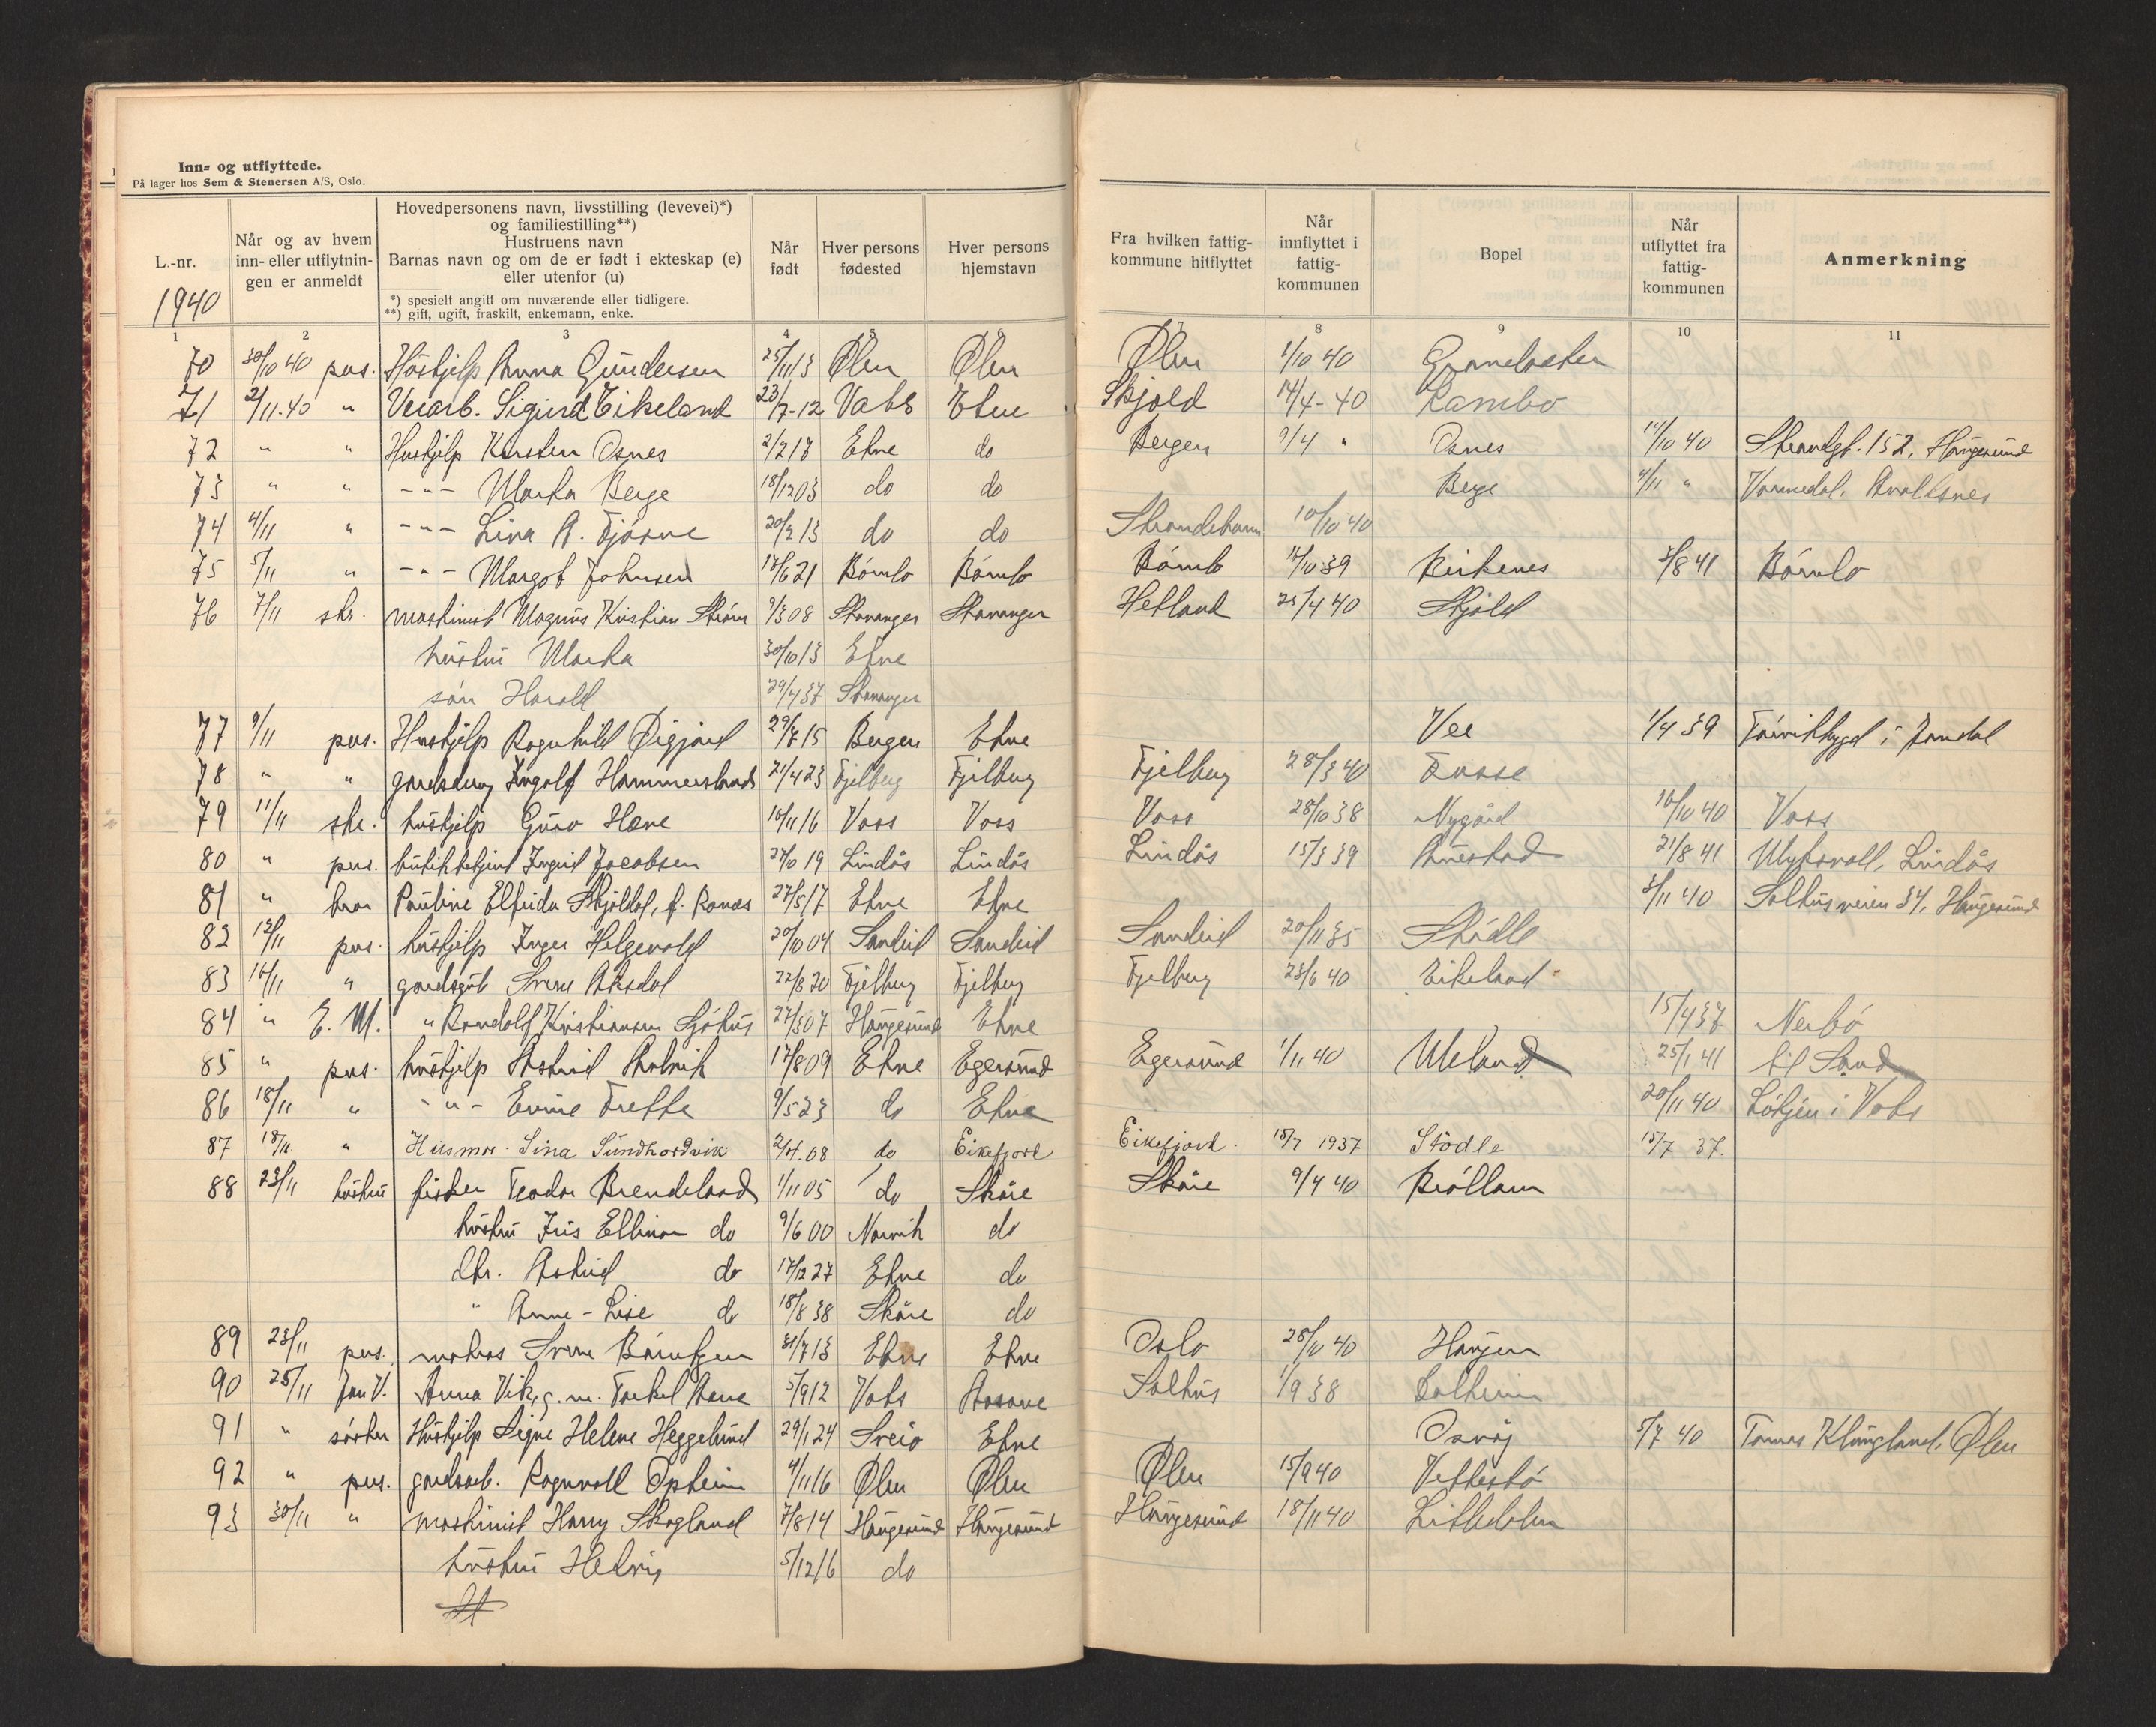 Inn- og utflyttede.
På lager hos Sem & Stenersen A/S, Oslo.
L.-nr.
1940
Når og av hvem inn- eller utflytningen er anmeldt
Hovedpersonens navn, livsstilling (levevei)*) og familiestilling**)
Hustruens navn
Barnas navn og om de er født i ekteskap (e) eller utenfor (u)
*) spesielt angitt om nuværende eller tidligere.
**) gift, ugift, fraskilt, enkemann, enke.
Når født
Hver persons fødested
Hver persons hjemstavn
Fra hvilken fattigkommune hitflyttet
Når innflyttet i fattigkommunen
Bopel
Når utflyttet fra fattigkommunen
Anmerkning
1 2 3 4 5 6 7 8 9 10 11
70 30/10 40 pers. Hushjelp Anna Gundersen 25/11 13 Ølen Ølen Ølen 1/10 40
71 2/11-40 " Veiarb. Sigurd Eikeland 23/7-12 Vats Etne Skjold 14/4-40 Rambo
72 " " Hushjelp Kirsten Osnes 2/2 18 Etne do Bergen 9/4 " Osnes 14/10 40 Strandgt. 152, Haugesund
73 " " -"- Marta Berge 18/12 03 do do Berge 4/11 " Vormedal, Avaldsnes
74 4/11 " -"- Lina A. Fjøsne 20/2 13 do do Strandebarm 10/10 40
75 5/11 " -"- Margot Johnsen 17/6 21 Bømlo Bømlo Bømlo 14/10 39 Birkenes 3/8 41 Bømlo
76 7/11 skr. maskinist Magnus Kristian Strøm 9/3 08 Stavanger Stavanger Hetland 25/4 40 Skjold
hustru Marta 30/10 13 Etne
søn Harald 29/4 37 Stavanger
77 9/11 pers. Hushjelp Ragnhild Øigjord 29/7 15 Bergen Etne Vee 1/4 39 Tørvikbygd i Jondal
78 " " gardsdreng Ingolf Hammersland 21/4 23 Fjelberg Fjelberg Fjelberg 28/3 40 Fosse
79 11/11 skr. hushjelp Guro Hæve 16/11 16 Voss Voss Voss 28/10 38 Nygård 10/10 40 Voss
80 " pers. butikkbetjent Ingrid Jacobsen 27/10 19 Lindås Lindås Lindås 15/3 39 Ånestad 21/8 41 Lindås
81 " bror Pauline Elfrida Skjoldal, f. 27/5 17 Etne Etne 3/11 40 Solhusveien 34, Haugesund
82 12/11 pers. hushjelp Inger Helgevold 20/10 04 Sandeid Sandeid Sandeid 20/11 35 Stødle
83 16/11 " gardsgut Sverre Aksdal 22/8 20 Fjelberg Fjelberg Fjelberg 23/6 40 Eikeland
84 " E. M. " Randolf Kristiansen Sjøhus 27/3 07 Haugesund Etne 15/4 37 Nerbø
85 " pers. hushjelp Astrid 17/8 09 Etne Egersund Egersund 1/11 40 25/1 41 til Sand
86 18/11 " -"- Enine Frette 9/5 23 do Etne 20/11 40 i Vats
87 18/11. " Husmor. Lina Sundhordvik 2/4.08 do Eikefjord Eikefjord 15/7 1937 Stødle 15/7 37.
88 23/11 hustru fisker Teodor Brendeland 1/11 05 do Skåre Skåre 9/4 40
hustru Iris Ellinor do 9/6 00 Narvik do
dtr. Astrid do 17/12 27 Etne do
" Anne-Lise do 18/8 38 Skåre do
89 23/11 pers. matros Sverre 31/7 13 Etne Etne Oslo 28/10 40 Haugen
90 25/11 Jon V. Anna Vik, g. m. Torkel 5/9 12 Vats Solhus 1/9 38 Solheim
91 " søster Hushjelp Signe Helene Heggelund 29/1 24 Sveio Etne Osvåg 5/7 40 Tomas Klungland, Ølen
92 " pers. gardsarb. Ragnvald Opheim 4/11 16 Ølen Ølen Ølen 15/9 40 Vettestø
93 30/11 " maskinist Harry Skogland 7/8 14 Haugesund Haugesund Haugesund 18/11 40 Litledalen
hustru Helvig 5/12 16 do